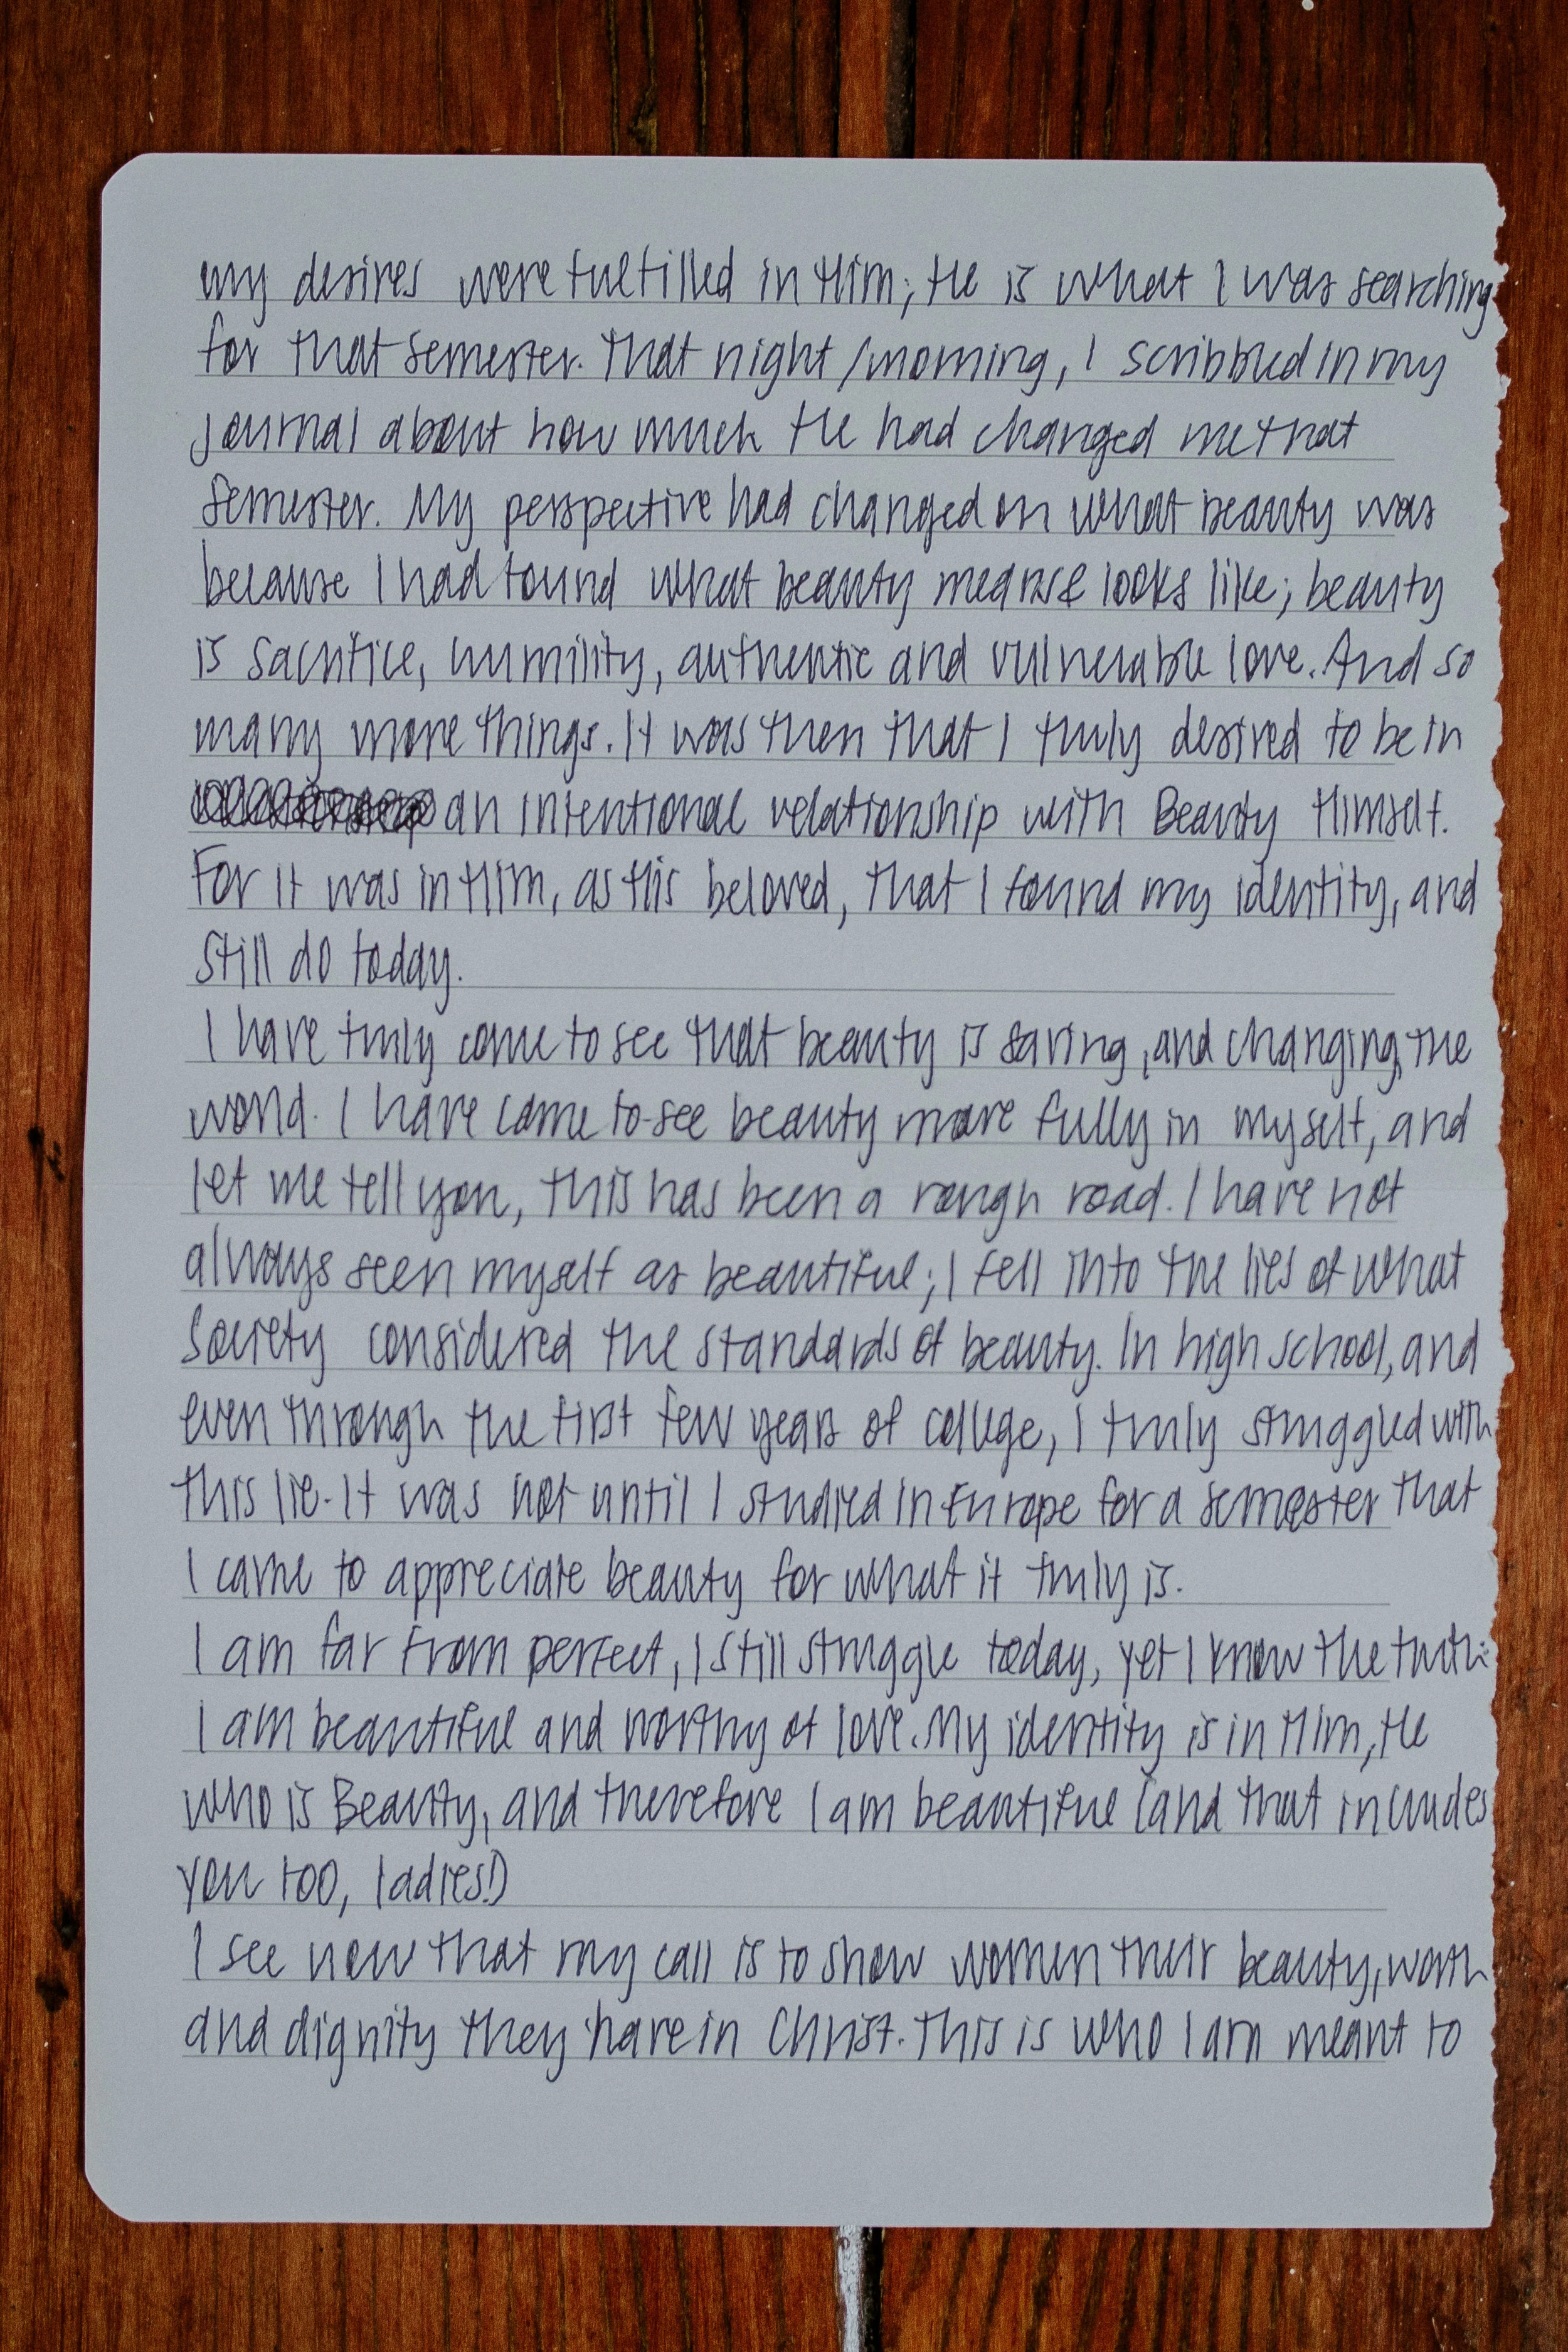 my desires were fulfilled in Him; He is what I was searching
for that semester. That night/morning, I scribbled in my
journal about how much He had changed me that
semester. My perspective had changed on what beauty was
because I had found what beauty means & looks like; beauty
is sacrifice, humility, authentic and vulnerable love. And so
many more things. It was then that I truly desired to be in
an intentional relationship with Beauty Himself.
For it was in Him, as His beloved, that I found my identity, and
still do today.
I have truly come to see that beauty is saving, and changing, the
world. I have come to see beauty more fully in myself, and
let me tell you, this has been a rough road. I have not
always seen myself as beautiful; I fell into the lies of what
society considered the standards of beauty. In high school, and
even through the first few years of college, I truly struggled with
this lie. It was not until I studied in Europe for a semester that
I came to appreciate beauty for what it truly is.
I am far from perfect, I still struggle today, yet I know the truth:
I am beautiful and worthy of love. My identity is in Him, He
who is Beauty, and therefore I am beautiful (and that includes
you too, ladies!)
I see now that my call is to show women their beauty, worth
and dignity they have in Christ. This is who I am meant to